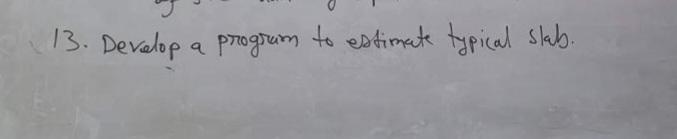 13. Develop a program to estimate typical slab.